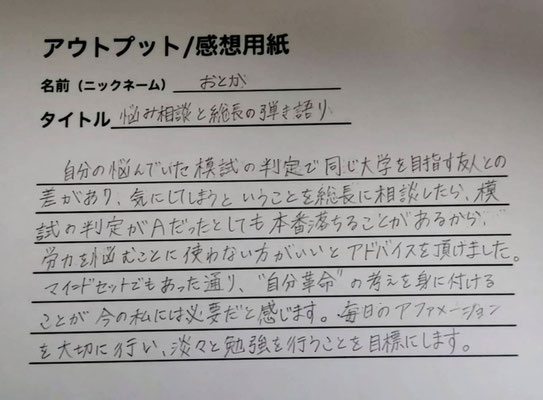 アウトプット/感想用紙
名前（ニックネーム） おとか
タイトル 悩み相談と総長の弾き語り
自分の悩んでいた模試の判定で同じ大学を目指す友人との
差があり、気にしてしまうということを総長に相談したら、模
試の判定がAだったとしても本番落ちることがあるから、
労力を悩むことに使わない方がいいとアドバイスを頂けました。
マインドセットでもあった通り、"自分革命"の考えを身に付ける
ことが今の私には必要だと感じます。毎日のアファメーション
を大切に行い、淡々と勉強を行うことを目標にします。